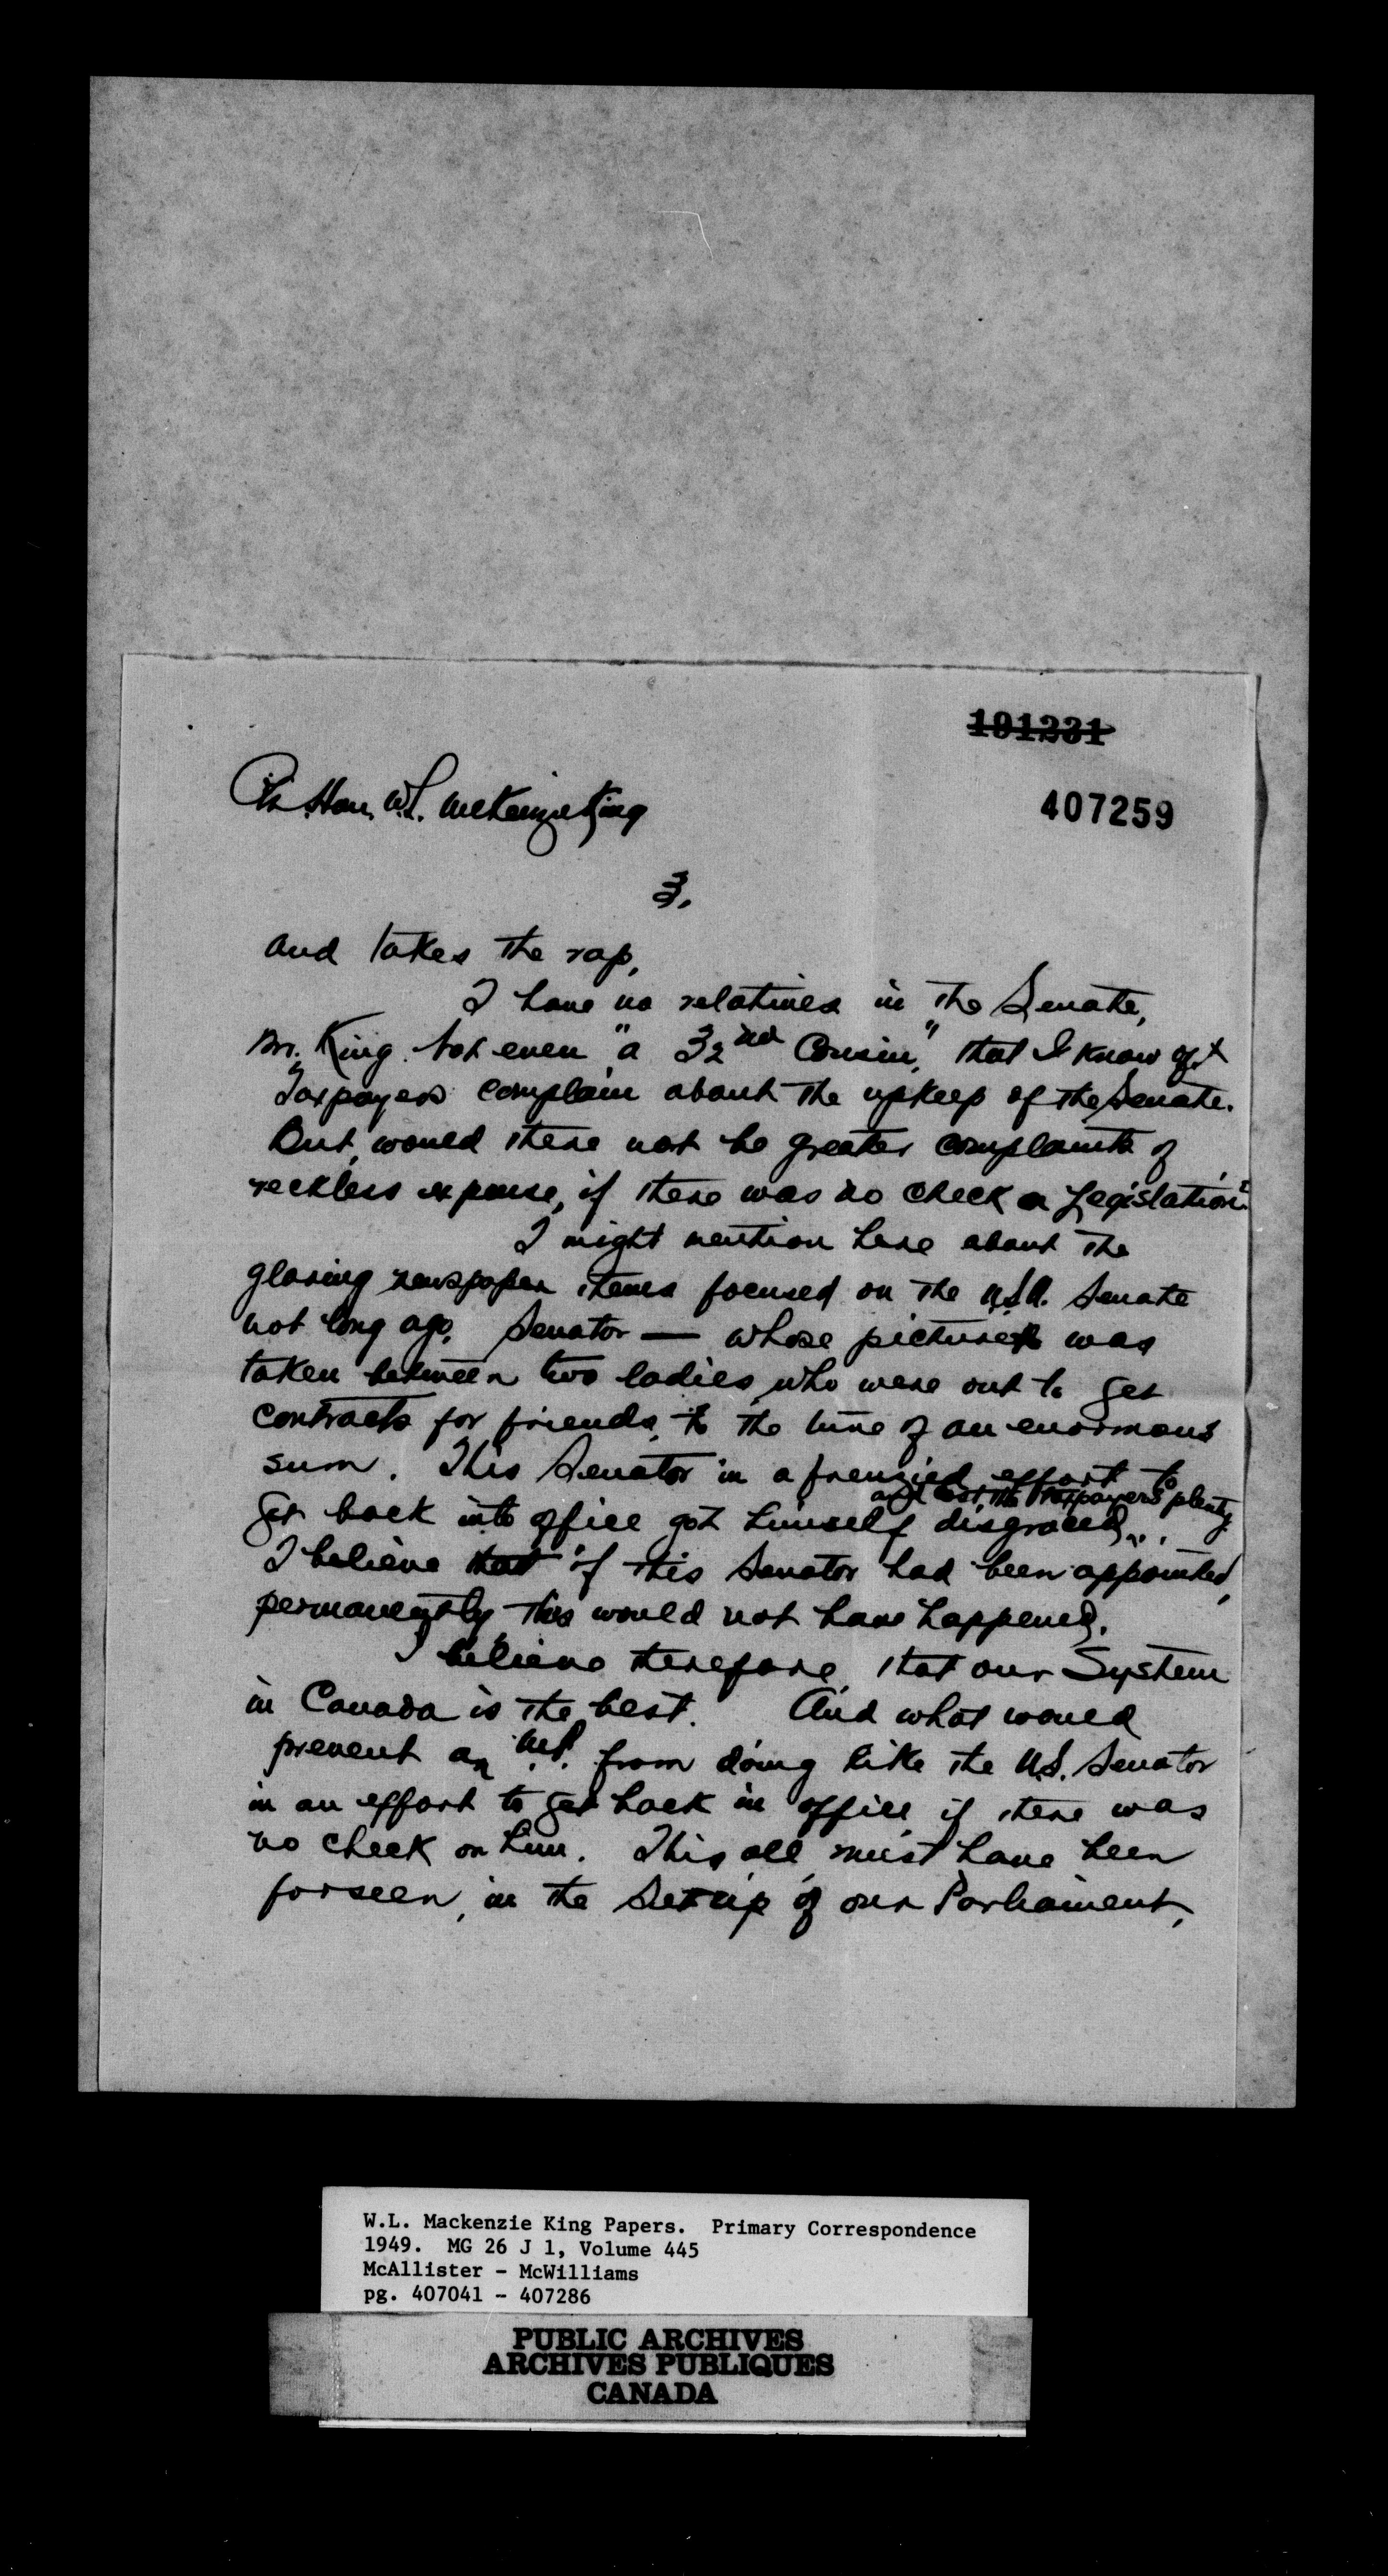 101231
Rt. Hon. W.L. McKenzie King
407259
3.
and takes the rap,
I have no relatives in the Senate,
Mr. King. Not even "a 32nd Cousin," that I know of.
Taxpayers complain about the upkeep of the Senate.
But, would there not be greater complaints of
reckless expense, if there was no check on Legislation.
I might mention here about the
glaring newspaper items focused on the U.S.A. Senate
not long ago. Senator — whose picture was
taken between two ladies, who were out to get
contracts for friends, to the tune of an enormous
sum. This Senator in a frenzied effort to
and cost the taxpayers plenty.
get back into office got himself disgraced,
I believe that if this Senator had been appointed,
permanently, this would not have happened.
I believe therefore that our System
in Canada is the best. And what would
prevent an M.P. from doing like the U.S. Senator
in an effort to get back in office, if there was
no check on him. This all must have been
forseen, in the Set-up of our Parliament,
W.L. Mackenzie King Papers. Primary Correspondence
1949. MG 26 J 1, Volume 445
McAllister - McWilliams
pg. 407041 - 407286
PUBLIC ARCHIVES
ARCHIVES PUBLIQUES
CANADA